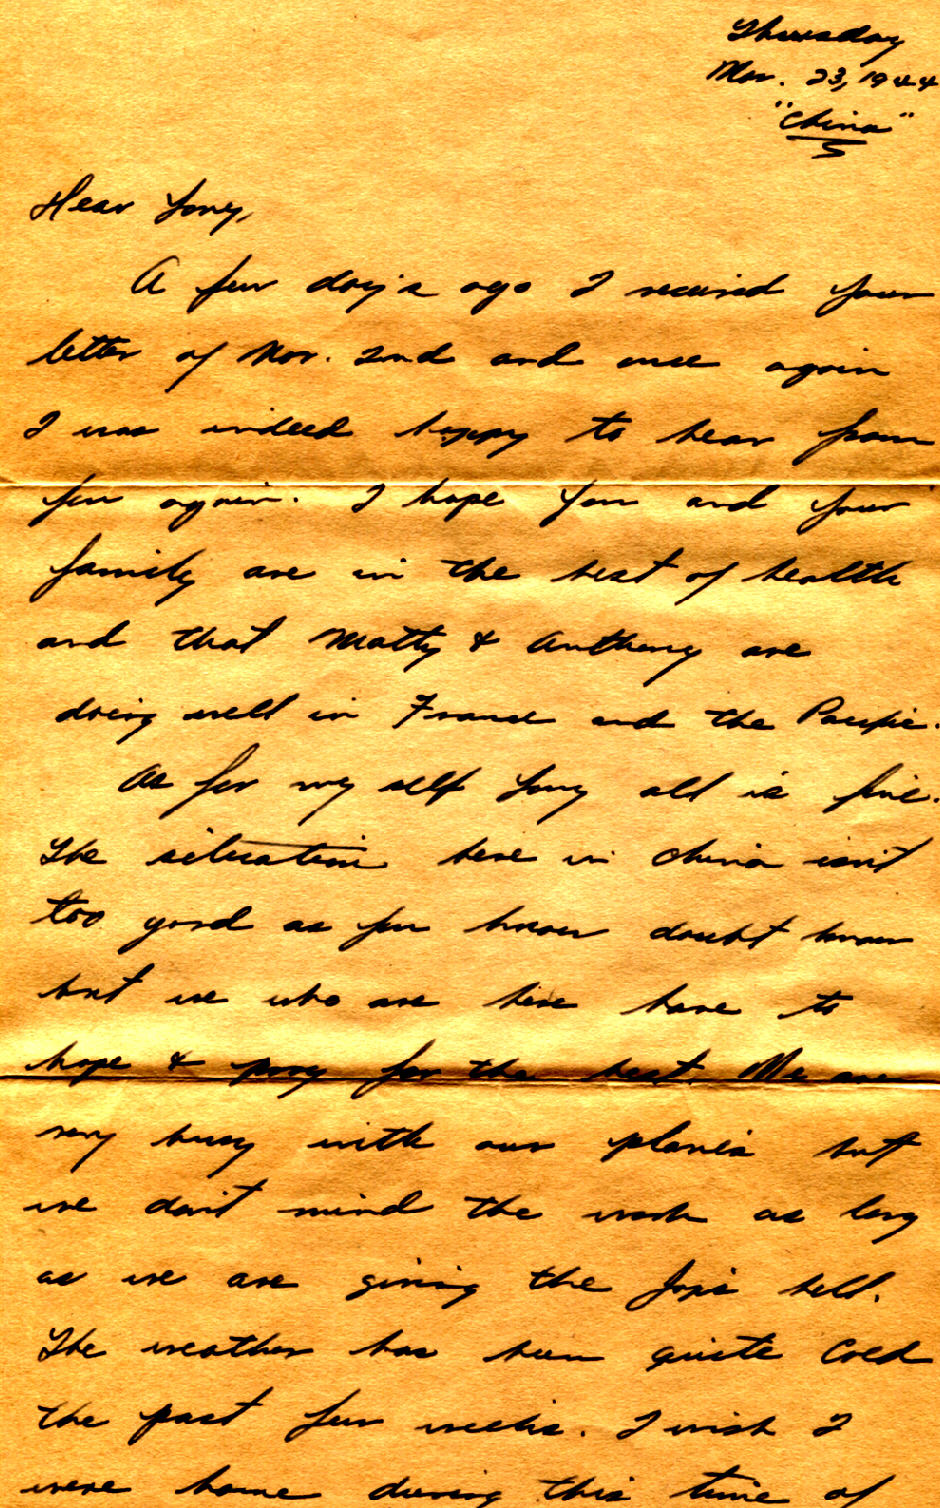 Thursday
Nov. 23, 1944
"China"
Dear Tony,
A few day's ago I received your
letter of Nov. 2nd and once again
I was indeed happy to hear from
you again. I hope you and your
family are in the best of health
and that Matty & Anthony are
doing well in France and the Pacific.
As for my self Tony all is fine.
The situation here in China isn't
too good as you know doubt know
but we who are here have to
hope & pray for the best. We are
very busy with our planes but
we don't mind the work as long
as we are giving the Japs hell.
The weather has been quite cold
the past few weeks. I wish I
were home during this time of